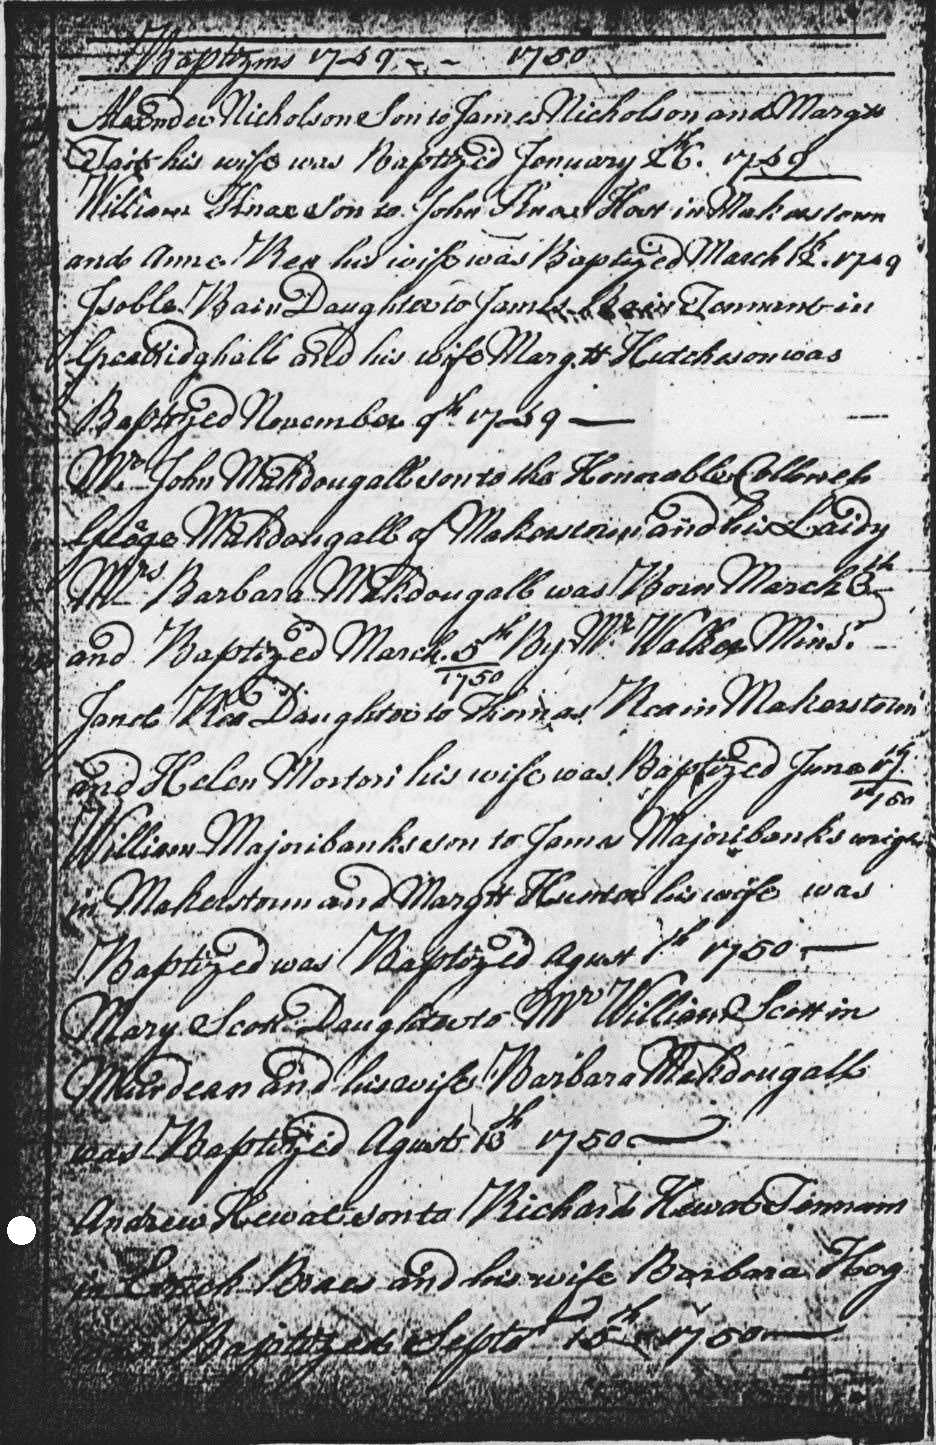 Baptizms 1749 - - 1750
Alexnder Nicholson Son to James Nicholson and Margtt
Tait his wife was Baptized Jenuary 26th. 1749
William Knae son to John Knae Hert in Makerstown
and Anne Rea his wife was Baptized March 12th. 1749
Isoble Bain Daughter to James Bain Tennent in
Greatridghall and his wife Margtt Hutcheson was
Baptized November 9th 1749
Mr. John Makdougall son to the Honorable Collonell
George Makdougall of Makerstoun and his Laidy
Mrs Barbara Makdougall was Born March 3th
and Baptized March 5th By Mr. Walker Minr.
1750
Janet Rea Daughter to Thomas Rea in Makerstoun
and Helen Morton his wife was Baptized June 17th
1750
William Majoribanks son to James Majoribanks wright
in Makerstoun and Margtt Hunter his wife was
Baptized was Baptized Agust 1th 1750
Mary Scott Daughter to Mr William Scott in
Muirdean and his wife Barbara Makdougall
was Baptized Agust 13th 1750
Andrew Hewat son to Richard Hewat Tennam
in Braes and his wife Barbara Hog
was Baptized Septr 15th 1750